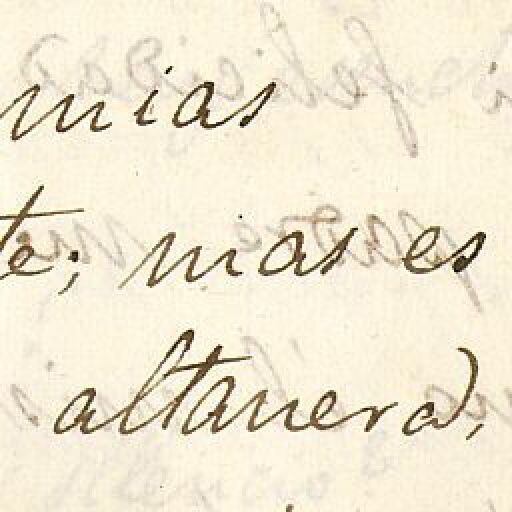 mias
te; mas es
altanera,